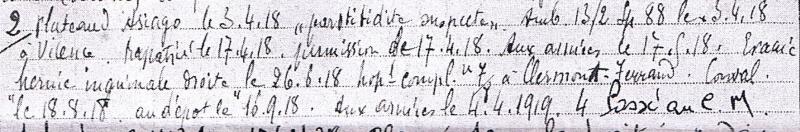 2 Plateau d'Asiago le 3.4.18 "parotitidite suspecte" Amb. 13/2 Sp 88 le 3.4.18
à Vicence. Rapatrié le 17.4.18. permission de 17.4.18. Aux armées le 17.5.18. Evacué
hernie inguinale droite le 26.6.18 hopt compl. 73 à Clermont-Ferrand. Conval.
le 18.8.18 au dépot le 16.9.18. Aux armées le 4.4.1919. 4 Passé au C.M